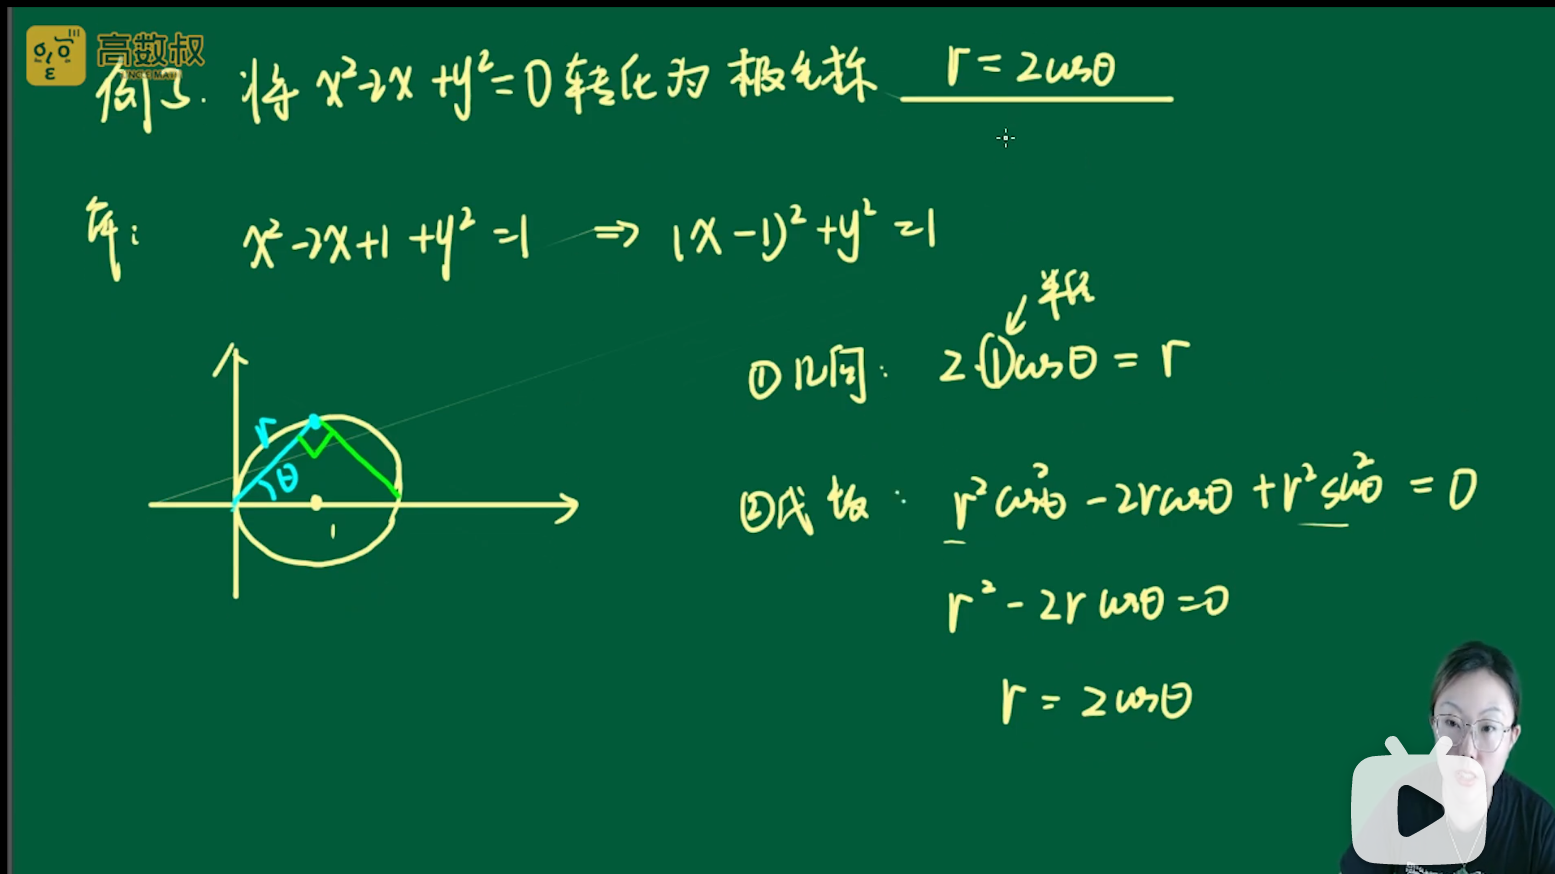 高数叔
例3. 将 x²-2x+y²=0 转化为极坐标 r=2cosθ
解: x²-2x+1+y²=1 ⇒ (x-1)²+y²=1
半径
①几何: 2·1cosθ=r
r
θ
1
②代数: r²cos²θ-2rcosθ+r²sin²θ=0
r²-2rcosθ=0
r=2cosθ